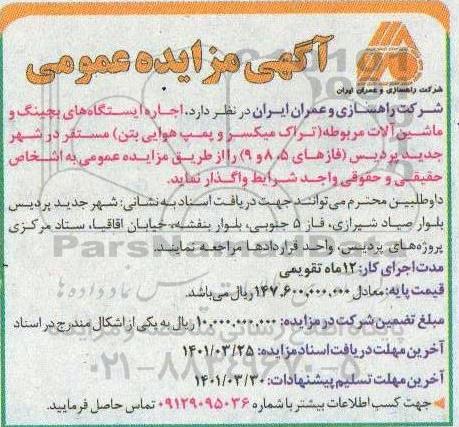 آگهی مزایده عمومی
شرکت راهسازی و عمران ایران
شرکت راهسازی و عمران ایران در نظر دارد، اجاره ایستگاه‌های بچینگ و
ماشین آلات مربوطه (تراک میکسر و پمپ هوایی بتن) مستقر در شهر
جدید پردیس (فازهای ۵، ۸ و ۹) را از طریق مزایده عمومی به اشخاص
حقیقی و حقوقی واجد شرایط واگذار نماید.
داوطلبین محترم می‌توانند جهت دریافت اسناد به نشانی: شهر جدید پردیس
بلوار صیاد شیرازی، فاز ۵ جنوبی، بلوار بنفشه، خیابان اقاقیا، ستاد مرکزی
پروژه‌های پردیس، واحد قراردادها مراجعه نمایند.
مدت اجرای کار: ۱۲ ماه تقویمی
قیمت پایه: معادل ۱۴۷,۶۰۰,۰۰۰,۰۰۰ ریال می‌باشد.
مبلغ تضمین شرکت در مزایده: ۱۰,۰۰۰,۰۰۰,۰۰۰ ریال به یکی از اشکال مندرج در اسناد
آخرین مهلت دریافت اسناد مزایده: ۱۴۰۱/۰۳/۲۵
آخرین مهلت تسلیم پیشنهادات: ۱۴۰۱/۰۳/۳۰
جهت کسب اطلاعات بیشتر با شماره ۰۹۱۲۹۰۹۵۰۳۶ تماس حاصل فرمایید.